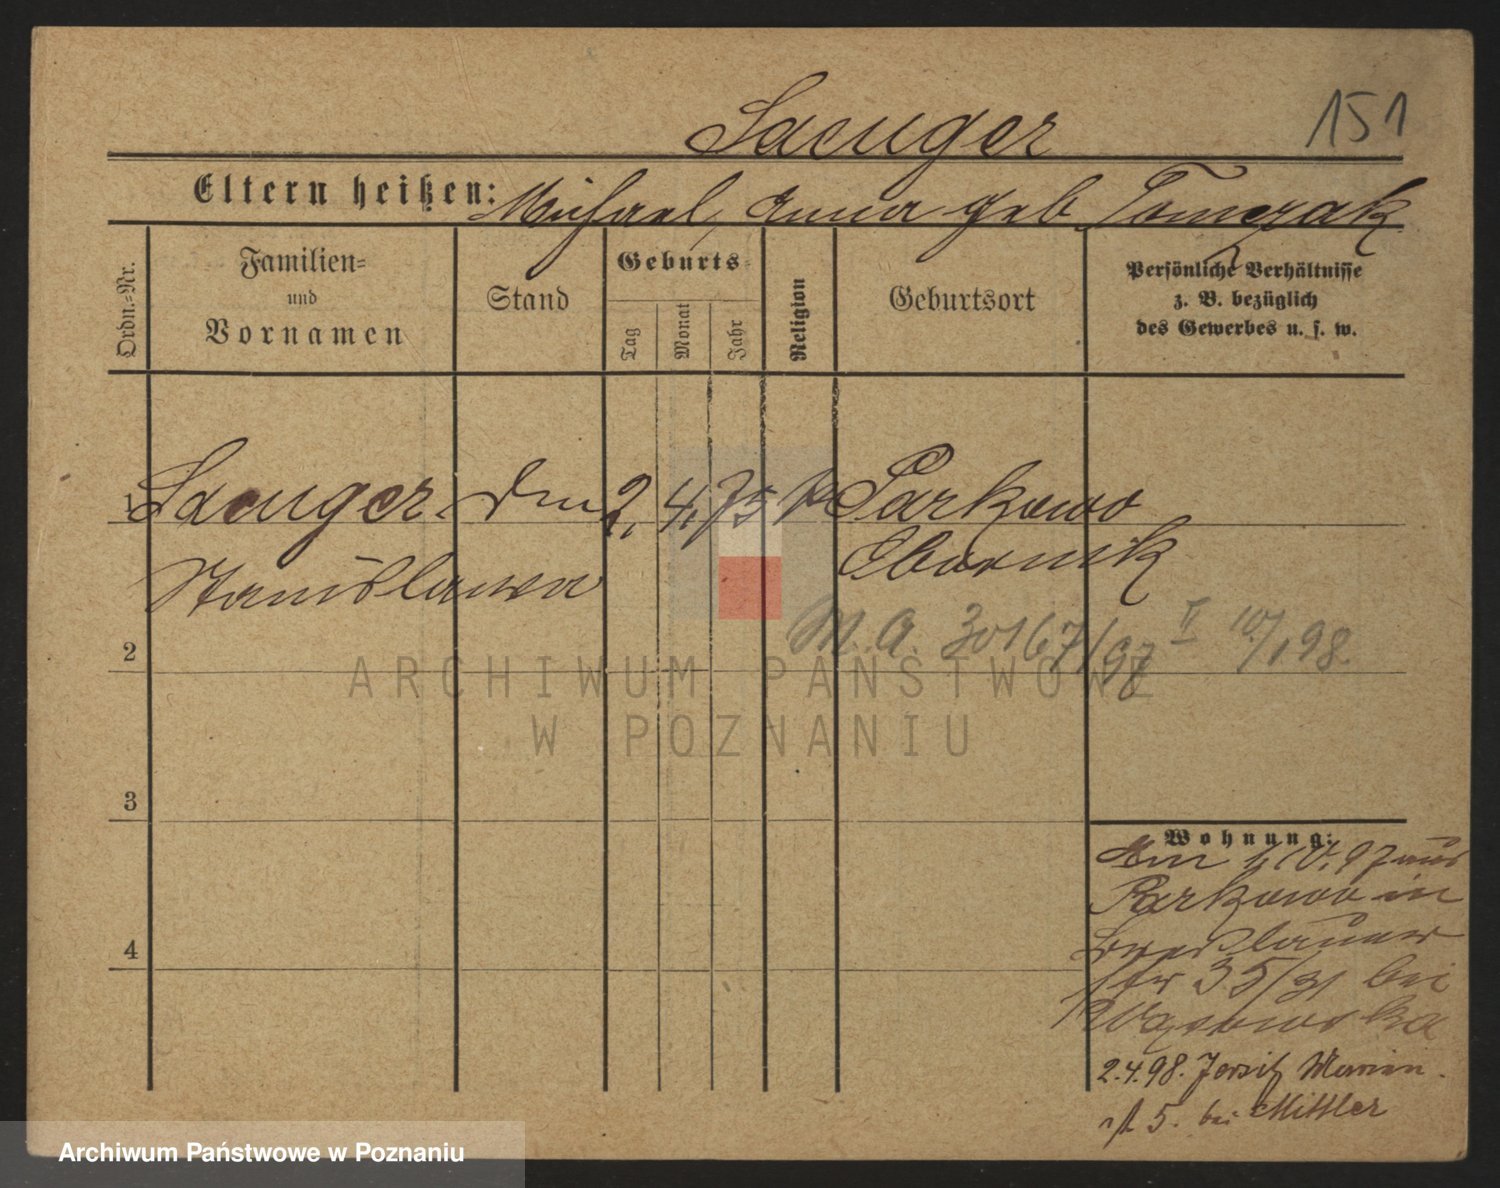 151
Saenger
Eltern heißen: Michael, Anna geb Tomczak
Ordn.-Nr.
Familien-
und
Vornamen
Stand
Geburts-
Tag
Monat
Jahr
Religion
Geburtsort
Persönliche Verhältnisse
z. B. bezüglich
des Gewerbes u. s. w.
1 Saenger 2. 4. 75 k Parkowo
Stanislawa Obornik
M. A. 30167/97 II 10/1 98
2
3
4
Wohnung:
97 aus
Parkowo in
Breslauer
str 35/31 bei
2.4.98. Jersitz Marien-
str 5. bei Mittler
ARCHIWUM PAŃSTWOWE
W POZNANIU
Archiwum Państwowe w Poznaniu